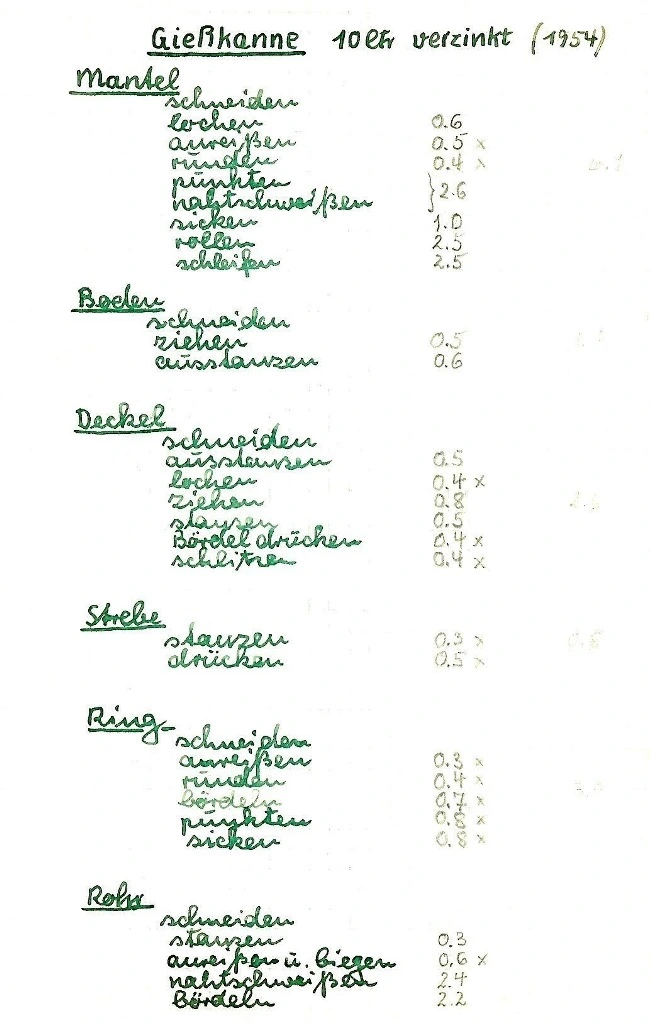 Gießkanne 10 ltr verzinkt (1954)
Mantel
schneiden
lochen 0.6
anreißen 0.5 x
runden 0.4 x
punkten
nahtschweißen } 2.6
sicken 1.0
rollen 2.5
schleifen 2.5
Boden
schneiden
ziehen 0.5
ausstanzen 0.6
Deckel
schneiden
ausstanzen 0.5
lochen 0.4 x
ziehen 0.8
stanzen 0.5
Bördel drücken 0.4 x
schlitzen 0.4 x
Strebe
stanzen 0.3 x
drücken 0.5 x
Ring
schneiden
anreißen 0.3 x
runden 0.4 x
bördeln 0.7 x
punkten 0.8 x
sicken 0.8 x
Rohr
schneiden
stanzen 0.3
anreißen u. biegen 0.6 x
nahtschweißen 2.4
bördeln 2.2